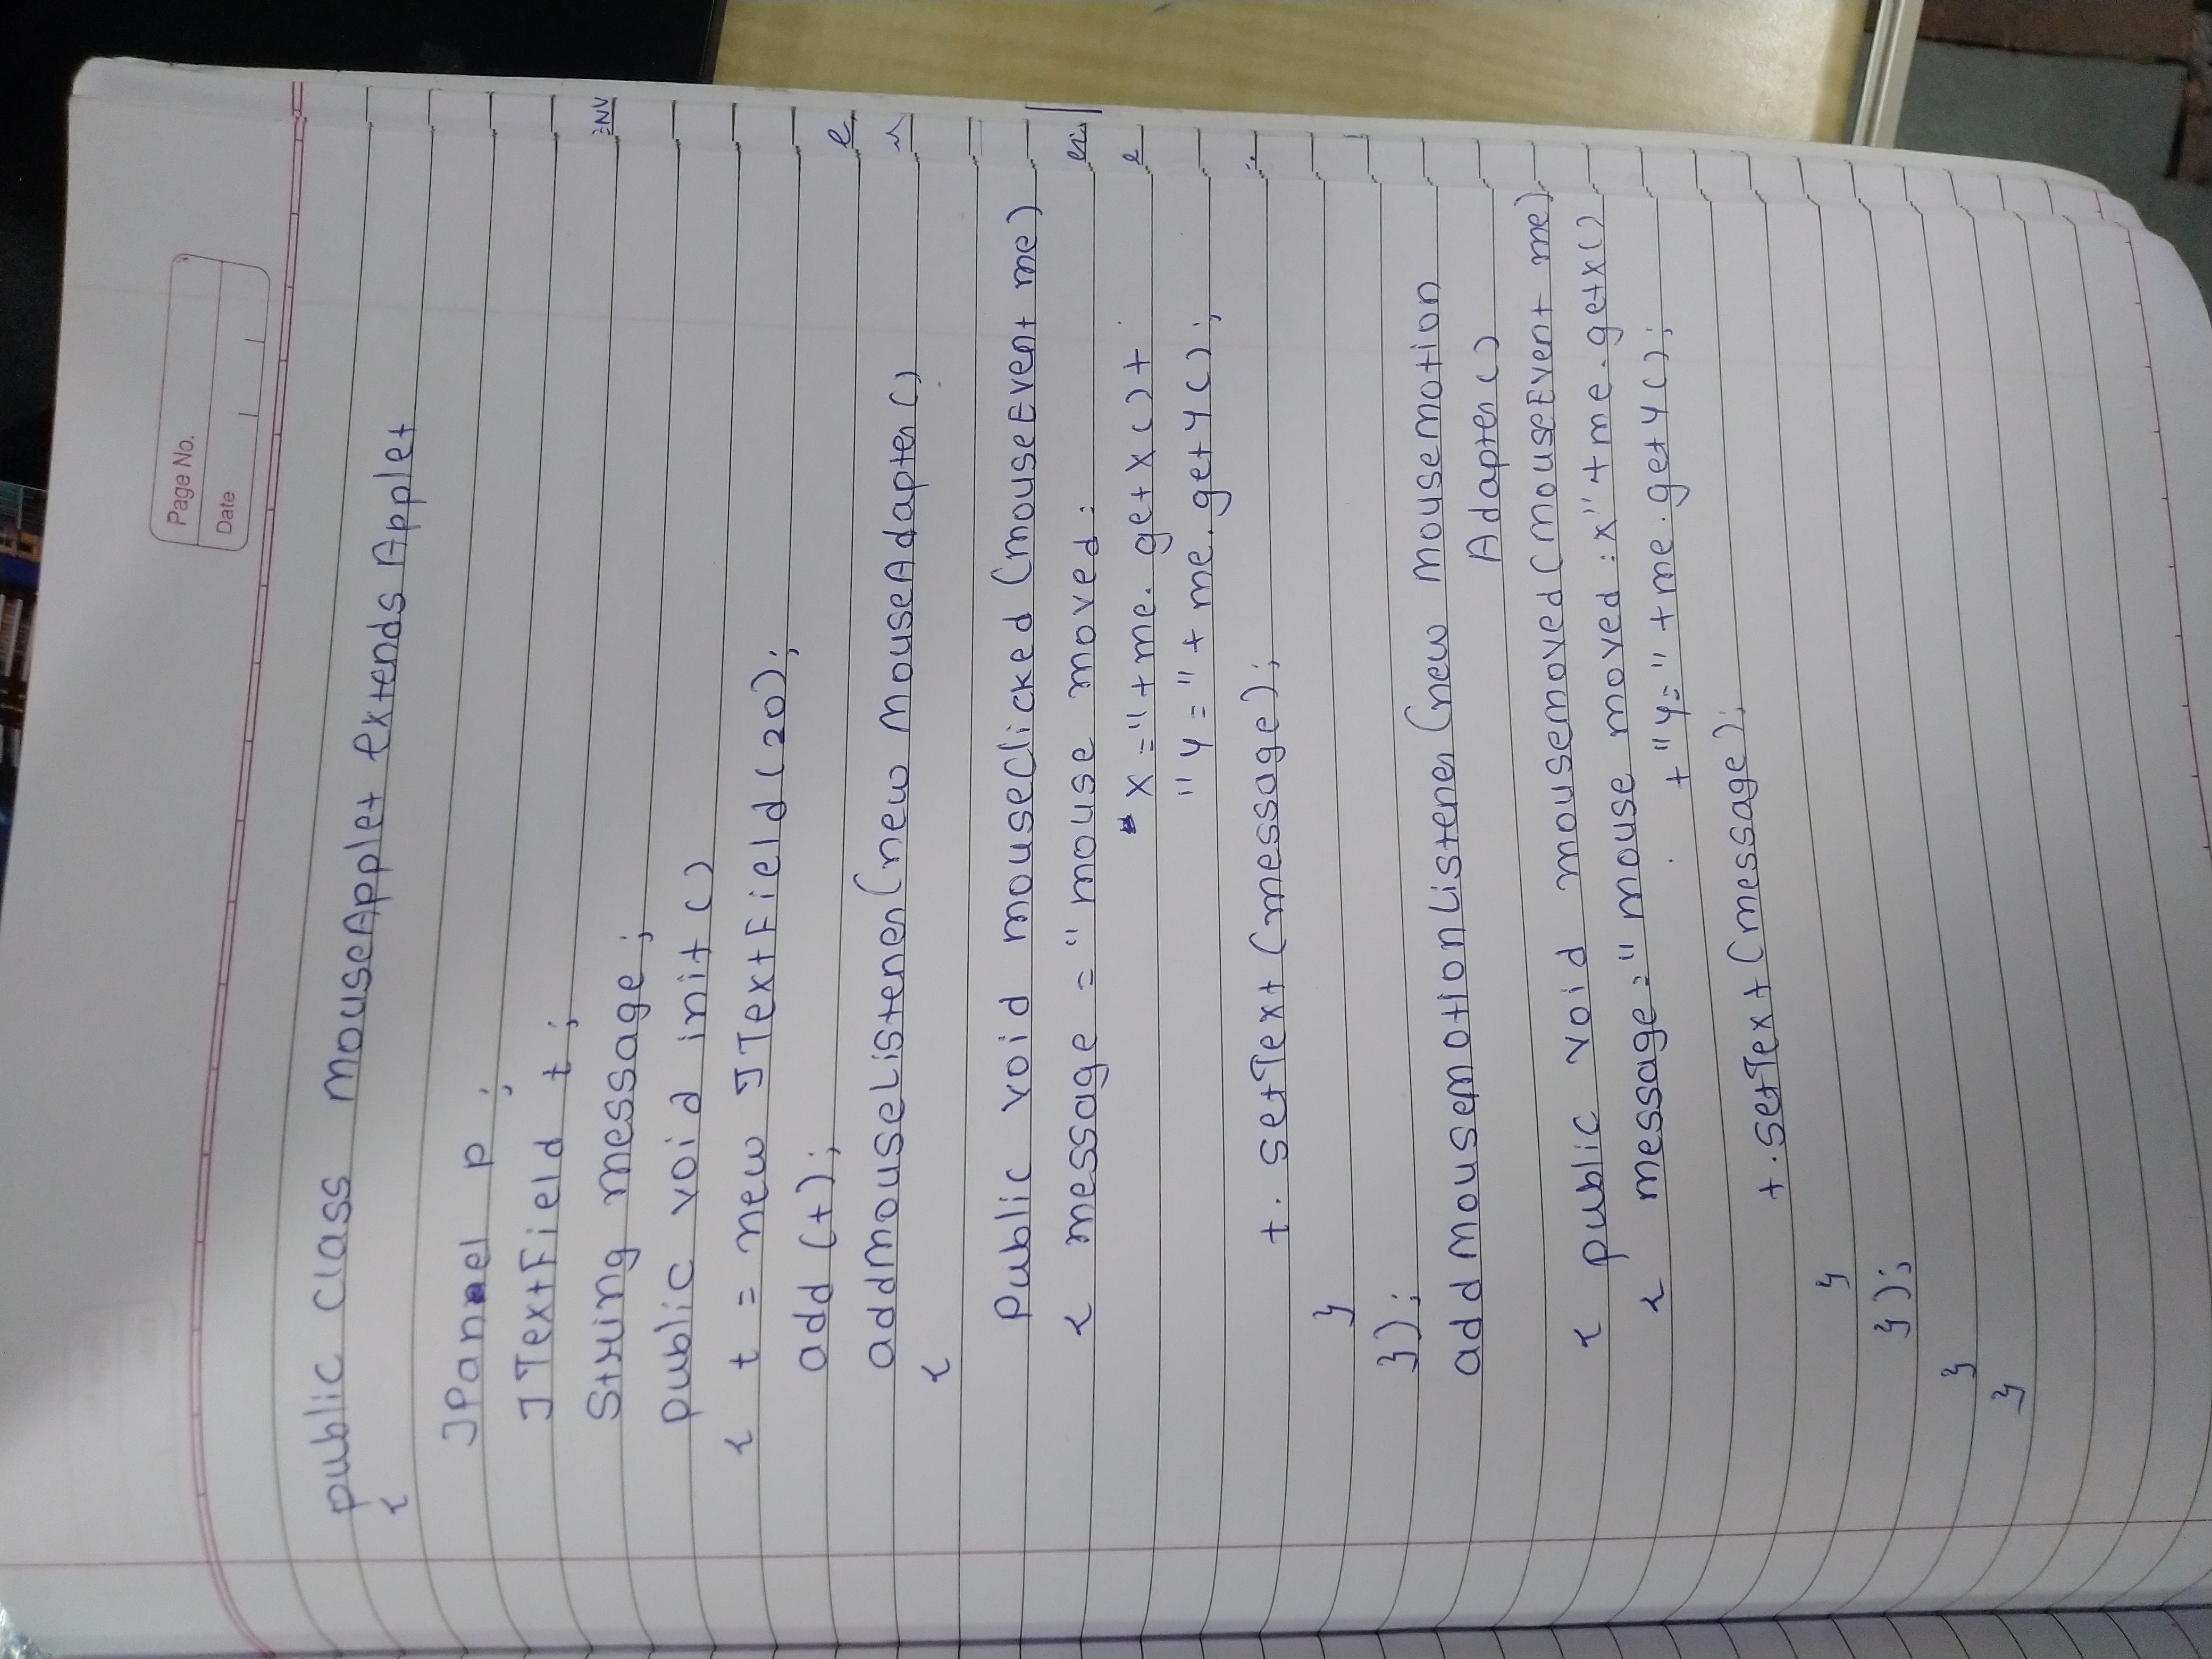 Page No.
Date
public class MouseApplet extends Applet
{
JPanel p ;
JTextField t ;
String message ;
public void init ()
{ t = new JTextField (20) ;
add (t) ;
addMouseListener (new MouseAdapter ()
{
Public void mouseClicked (MouseEvent me)
{ message = "mouse moved :
x =" + me. getX () +
"Y = " + me. getY () ;
t. setText (message) ;
}
}) ;
addMouseMotionListener (new MouseMotion
Adapter ()
{ public void mousemoved (MouseEvent me)
{ message = "mouse moved : x" + me. getX ()
+ "Y = " + me. getY () ;
t. setText (message) ;
}
}) ;
}
}